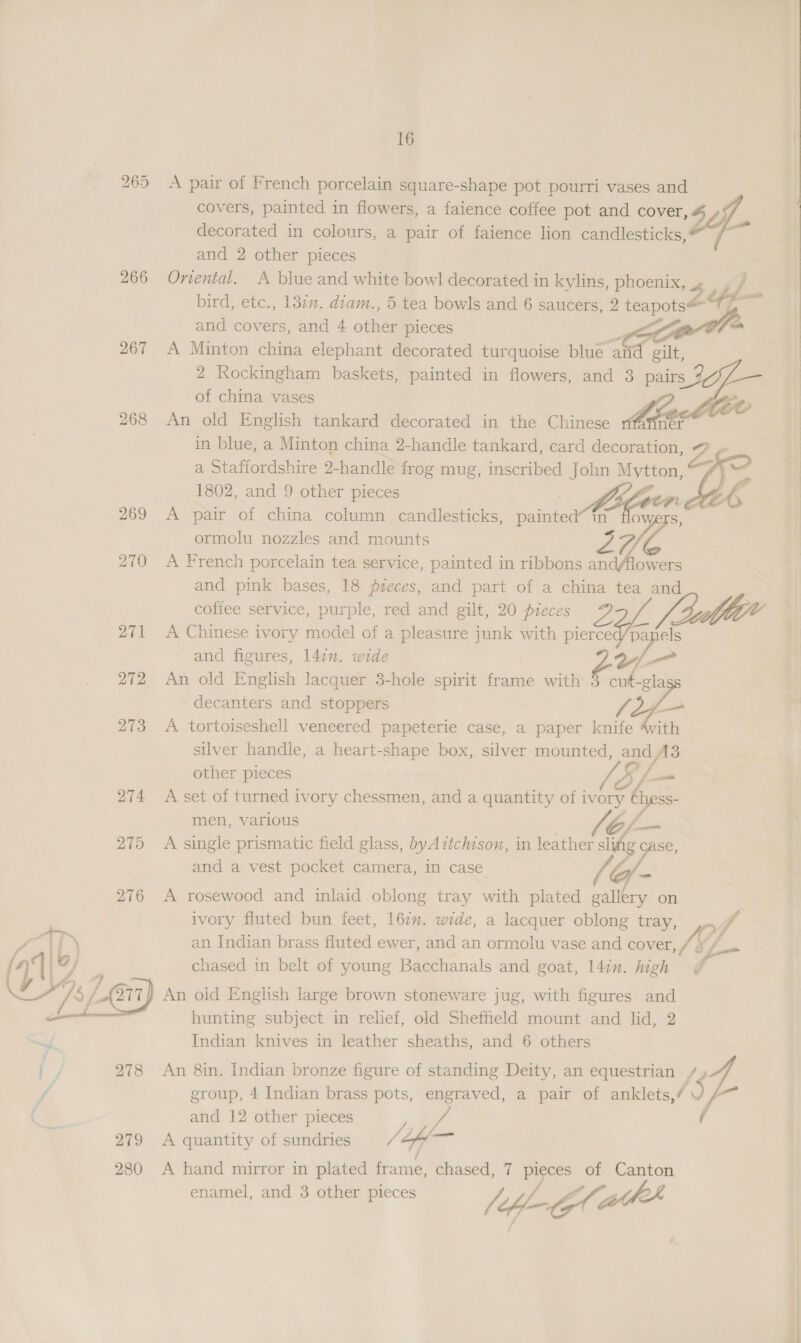 16
265 A pair of French porcelain square-shape pot pourri vases and
covers, painted in flowers, a faience coffee pot and cover,
decorated in colours, a pair of faience lion candlesticks,
and 2 other pieces
266 Oriental. A blue and white bowl decorated in kylins, phoenix,
bird, etc., 13in. diam., 5 tea bowls and 6 saucers, 2 teapots
and covers, and 4 other pieces
267 A Minton china elephant decorated turquoise blue and gilt,
2 Rockingham baskets, painted in flowers, and 3 pairs
of china vases
268 An old English tankard decorated in the Chinese manner
in blue, a Minton china 2-handle tankard, card decoration,
a Staffordshire 2-handle frog mug, inscribed John Mytton,
1802, and 9 other pieces
269 A pair of china column candlesticks, painted in flowers,
ormolu nozzles and mounts
270 A French porcelain tea service, painted in ribbons and flowers
and pink bases, 18 pieces, and part of a china tea and
coffee service, purple, red and gilt, 20 pieces 22/-
271 A Chinese ivory model of a pleasure junk with pierced panels
and figures, 14in. wide 22/-
272 An old English lacquer 3-hole spirit frame with 3 cut-glass
decanters and stoppers 12/-
273 A tortoiseshell veneered papeterie case, a paper knife with
silver handle, a heart-shape box, silver mounted, and 13
other pieces 18/-
274 A set of turned ivory chessmen, and a quantity of ivory chess-
men, various 16/-
275 A single prismatic field glass, by Aitchison, in leather sling case,
and a vest pocket camera, in case
276 A rosewood and inlaid oblong tray with plated gallery on
ivory fluted bun feet, 16in. wide, a lacquer oblong tray,
an Indian brass fluted ewer, and an ormolu vase and cover,
chased in belt of young Bacchanals and goat, 14in. high
277 An old English large brown stoneware jug, with figures and
hunting subject in relief, old Sheffield mount and lid, 2
Indian knives in leather sheaths, and 6 others
278 An 8in. Indian bronze figure of standing Deity, an equestrian
group, 4 Indian brass pots, engraved, a pair of anklets,
and 12 other pieces
279 A quantity of sundries
280 A hand mirror in plated frame, chased, 7 pieces of Canton
enamel, and 3 other pieces